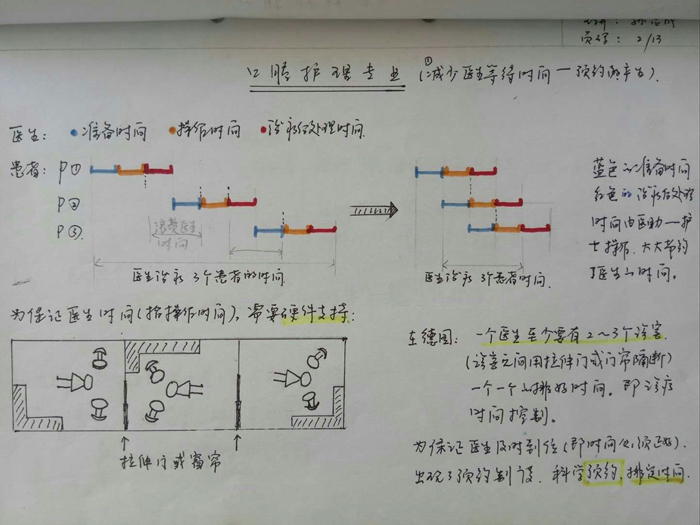 页码: 2/13
口腔护理专业 (①减少医生等待时间一预约的产生).
医生: •准备时间 •操作时间 •诊疗后处理时间.
患者: P①
P②
P③
浪费医生
时间
医生诊疗3个患者的时间
医生诊疗3个患者时间.
蓝色的准备时间
红色的诊疗后处理
时间由医助一护
士操作. 大大节约
了医生的时间。
为保证医生时间(指操作时间), 需要硬件支持:
拉伸门或窗帘
在德国: 一个医生至少要有2~3个诊室.
(诊室之间用拉伸门或门帘隔断)
一个一个的排好时间. 即诊疗
时间控制。
为保证医生及时到位(即时间
出现了预约制度. 科学预约, 排定时间.